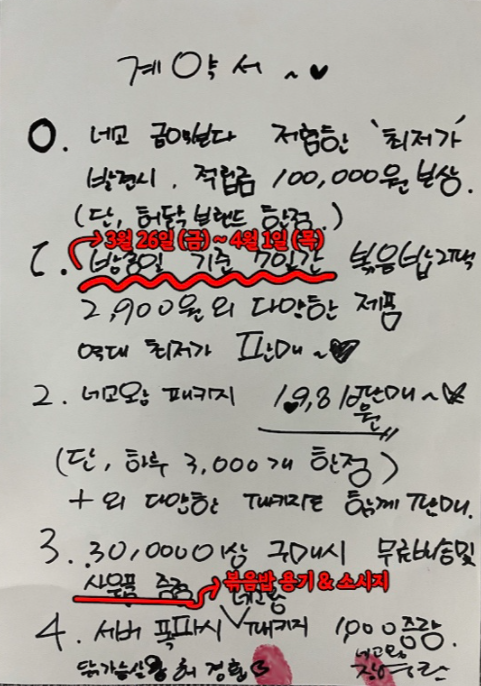 계약서 ~♥
0. 네고 금액보다 저렴한 '최저가'
발견시, 적립금 100,000원 보상.
(단, 허닭 브랜드 한정.)
→3월 26일 (금) ~ 4월 1일 (목)
1. 방영일 기준 7일간 볶음밥 2팩
2,900원 외 다양한 제품
역대 최저가 판매~♥
2. 네고왕 패키지 19,811원 판매~♥
(단, 하루 3,000개 한정)
+ 외 다양한 패키지도 함께 판매.
3. 30,000이상 구매시 무료배송 및
사은품 증정 → 볶음밥 용기 & 소시지
4. 서버 폭파시 네고왕 패키지 1,000 증량.
허 경환
네고왕
장영란